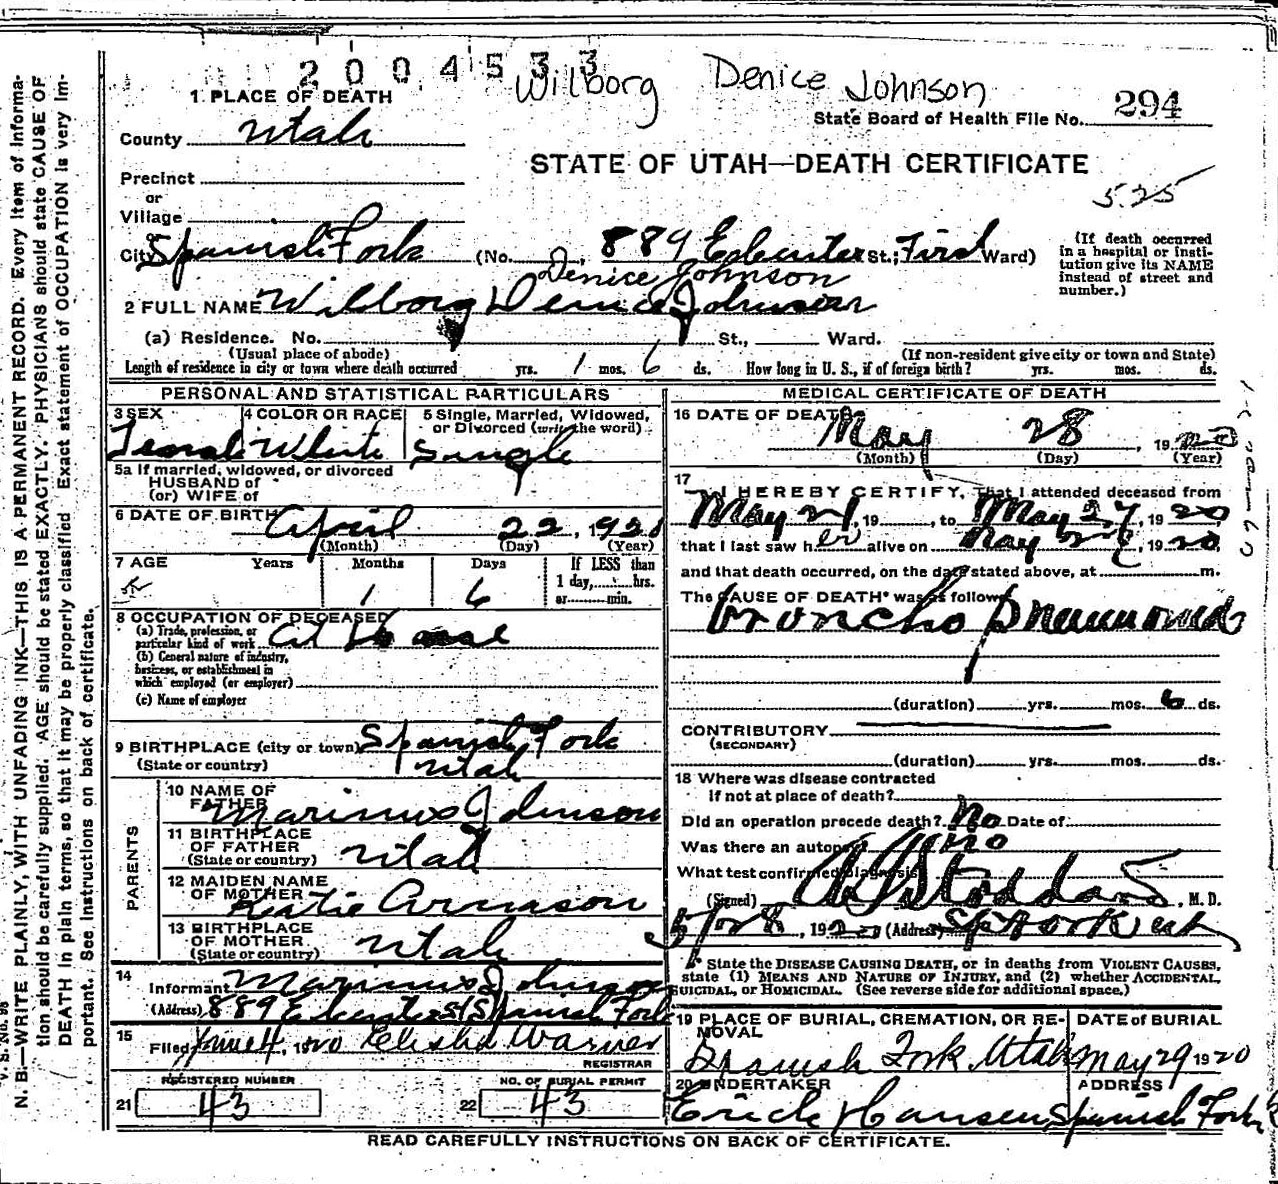 2004533
Wilborg Denice Johnson
1 PLACE OF DEATH
State Board of Health File No. 294
County Utah
STATE OF UTAH—DEATH CERTIFICATE
Precinct
525
or
Village
City Spanish Fork (No. 889 E. St.; First Ward)
(If death occurred in a hospital or institution give its NAME instead of street and number.)
Denice Johnson
2 FULL NAME Wilborg Denice Johnson
(a) Residence. No. St., Ward.
(Usual place of abode) (If non-resident give city or town and State)
Length of residence in city or town where death occurred yrs. 1 mos. 6 ds. How long in U. S., if of foreign birth? yrs. mos. ds.
PERSONAL AND STATISTICAL PARTICULARS
3 SEX 4 COLOR OR RACE 5 Single, Married, Widowed,
or Divorced (write the word)
Female White Single
5a If married, widowed, or divorced
HUSBAND of
(or) WIFE of
6 DATE OF BIRTH April 22, 1920
(Month) (Day) (Year)
7 AGE Years Months Days If LESS than
1 day, hrs.
or min.
1 6
8 OCCUPATION OF DECEASED
(a) Trade, profession, or
particular kind of work At House
(b) General nature of industry,
business, or establishment in
which employed (or employer)
(c) Name of employer
9 BIRTHPLACE (city or town) Spanish Fork
(State or country) Utah
PARENTS
10 NAME OF
FATHER Marinus Johnson
11 BIRTHPLACE
OF FATHER
(State or country) Utah
12 MAIDEN NAME
OF MOTHER Katie Arnason
13 BIRTHPLACE
OF MOTHER
(State or country) Utah
14
Informant Marinus Johnson
(Address) 889 E. St Spanish Fork
15
Filed June 4, 1920 Elisha Warner
REGISTRAR
REGISTERED NUMBER NO. OF BURIAL PERMIT
21 43 22 43
MEDICAL CERTIFICATE OF DEATH
16 DATE OF DEATH
May 28 1920
(Month) (Day) (Year)
17
I HEREBY CERTIFY, That I attended deceased from
May 21, 19 , to May 27, 1920
that I last saw her alive on May 1920
and that death occurred, on the date stated above, at m.
The CAUSE OF DEATH* was as follows:
broncho pneumonia
(duration) yrs. mos. 6 ds.
CONTRIBUTORY
(SECONDARY)
(duration) yrs. mos. ds.
18 Where was disease contracted
if not at place of death?
Did an operation precede death? No Date of
Was there an autopsy? no
What test confirmed diagnosis?
(Signed) Stoddard, M. D.
5/28, 1920 (Address) Sp Fork Utah
* State the DISEASE CAUSING DEATH, or in deaths from VIOLENT CAUSES,
state (1) MEANS AND NATURE OF INJURY, and (2) whether ACCIDENTAL,
SUICIDAL, or HOMICIDAL. (See reverse side for additional space.)
19 PLACE OF BURIAL, CREMATION, OR RE- DATE of BURIAL
MOVAL
Spanish Fork Utah May 29 1920
20 UNDERTAKER ADDRESS
Erick Hansen Spanish Fork
READ CAREFULLY INSTRUCTIONS ON BACK OF CERTIFICATE.
V. S. No. 98
N. B.—WRITE PLAINLY, WITH UNFADING INK—THIS IS A PERMANENT RECORD. Every item of informa-
tion should be carefully supplied. AGE should be stated EXACTLY. PHYSICIANS should state CAUSE OF
DEATH in plain terms, so that it may be properly classified. Exact statement of OCCUPATION is very im-
portant. See instructions on back of certificate.